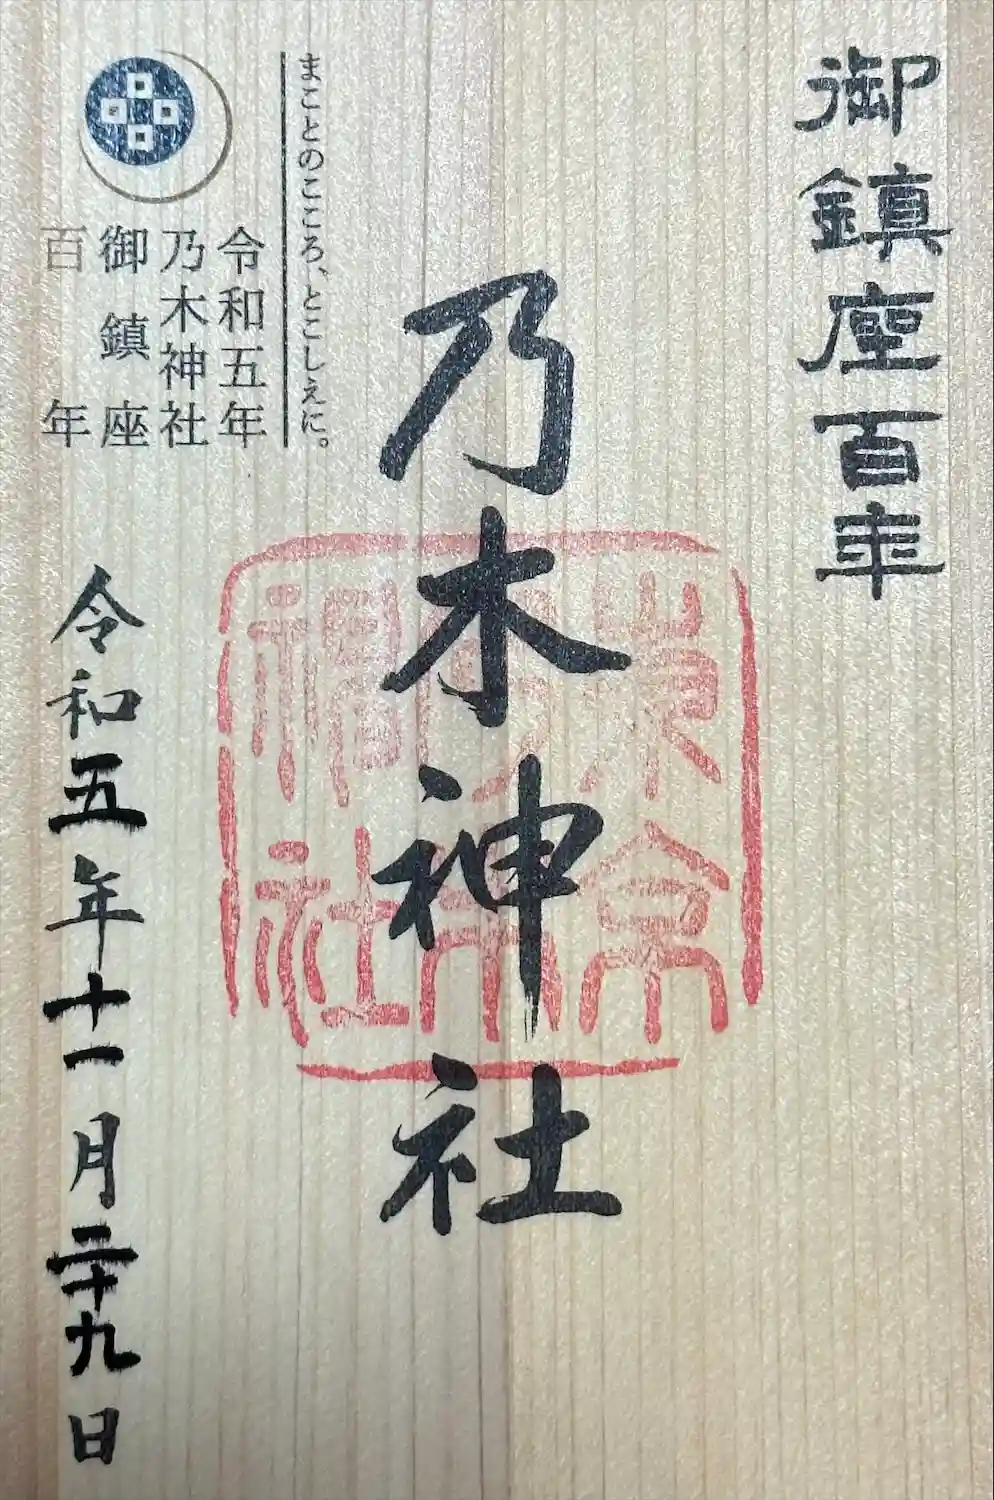 御鎮座百年
乃木神社
まことのこころ、とこしえに。
令和五年
乃木神社
御鎮座
百年
令和五年十一月二十九日